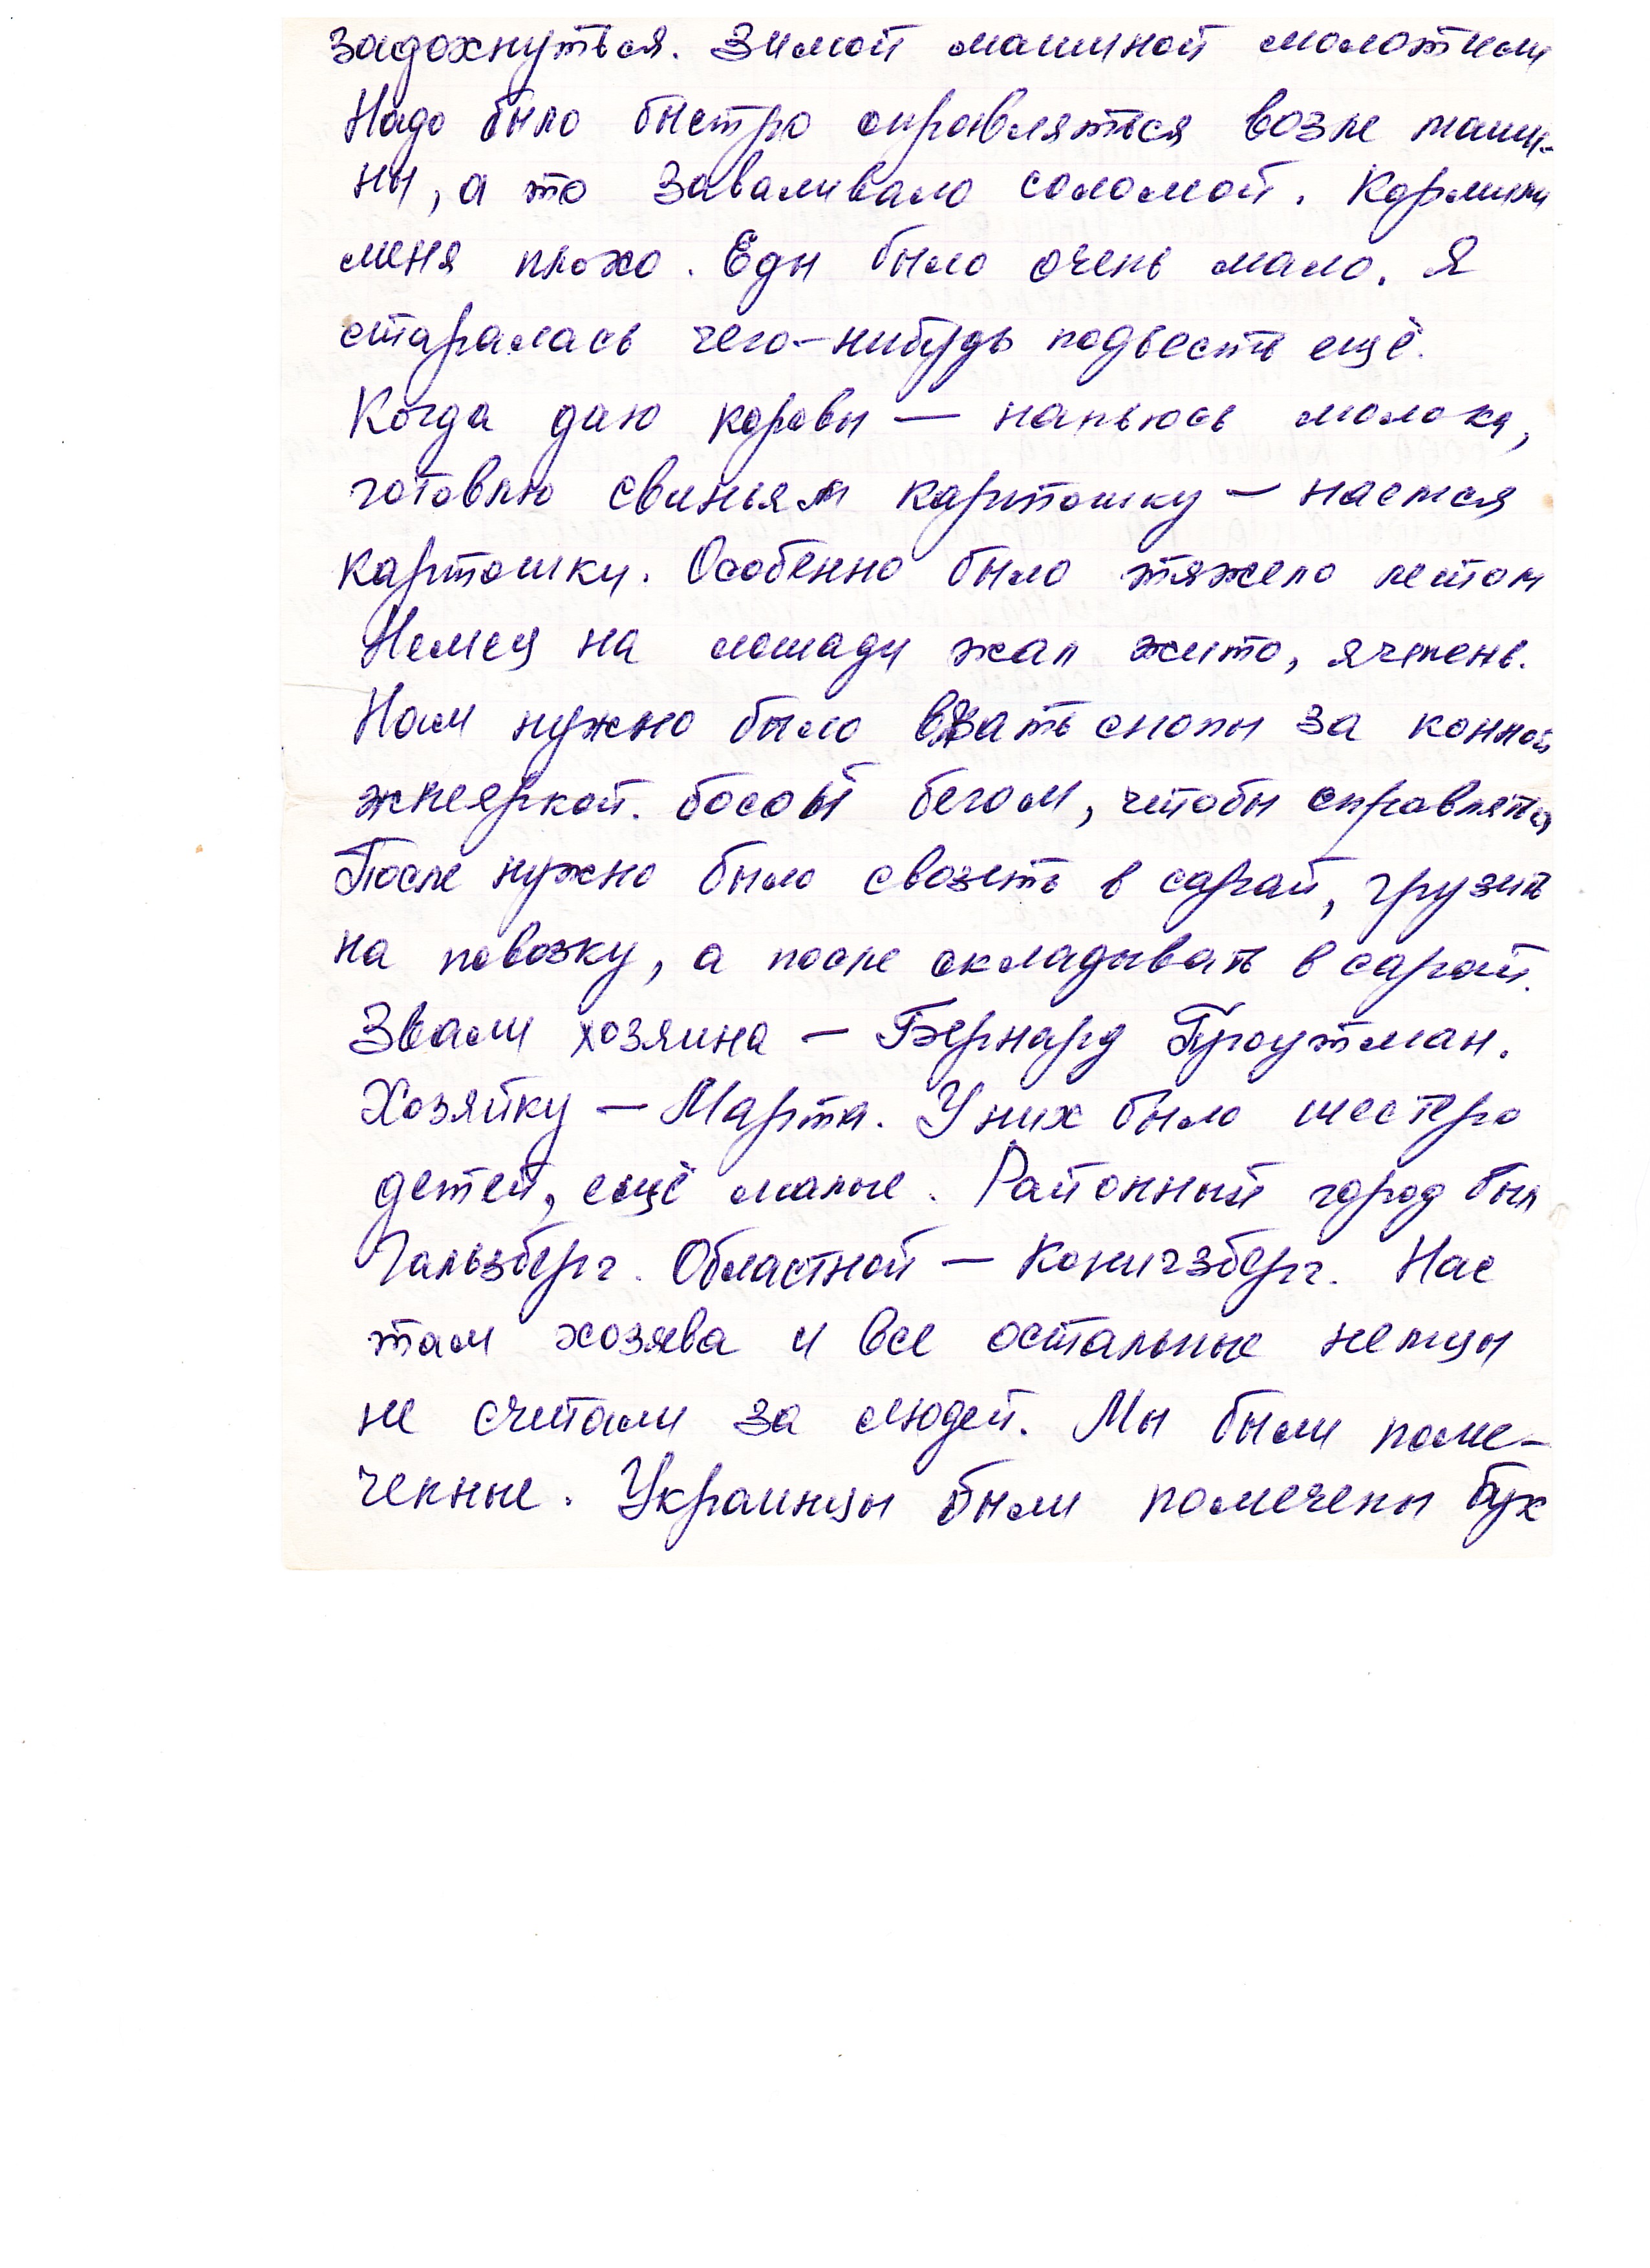 задохнуться. Зимой машиной молотили
Надо было быстро справляться возле маши-
ны, а то заваливало соломой. Кормили
меня плохо. Еды было очень мало. Я
старалась чего-нибудь подъесть ещё.
Когда даю коровы — напьюсь молока,
готовлю свиньям картошку — наемся
картошки. Особенно было тяжело летом
Немец на лошади жал жито, ячмень.
Нам нужно было вязать снопы за конной
жнееркой. босый бегом, чтобы справляться
После нужно было свозить в сарай, грузить
на повозку, а после складывать в сарай.
Звали хозяина — Бернард Проутман.
Хозяйку — Марта. У них было шестеро
детей, ещё малые. Районный город был
Гальзберг. Областной — Конигзберг. Нас
там хозяева и все остальные немцы
не считали за людей. Мы были поме-
ченные. Украинцы были помечены бук